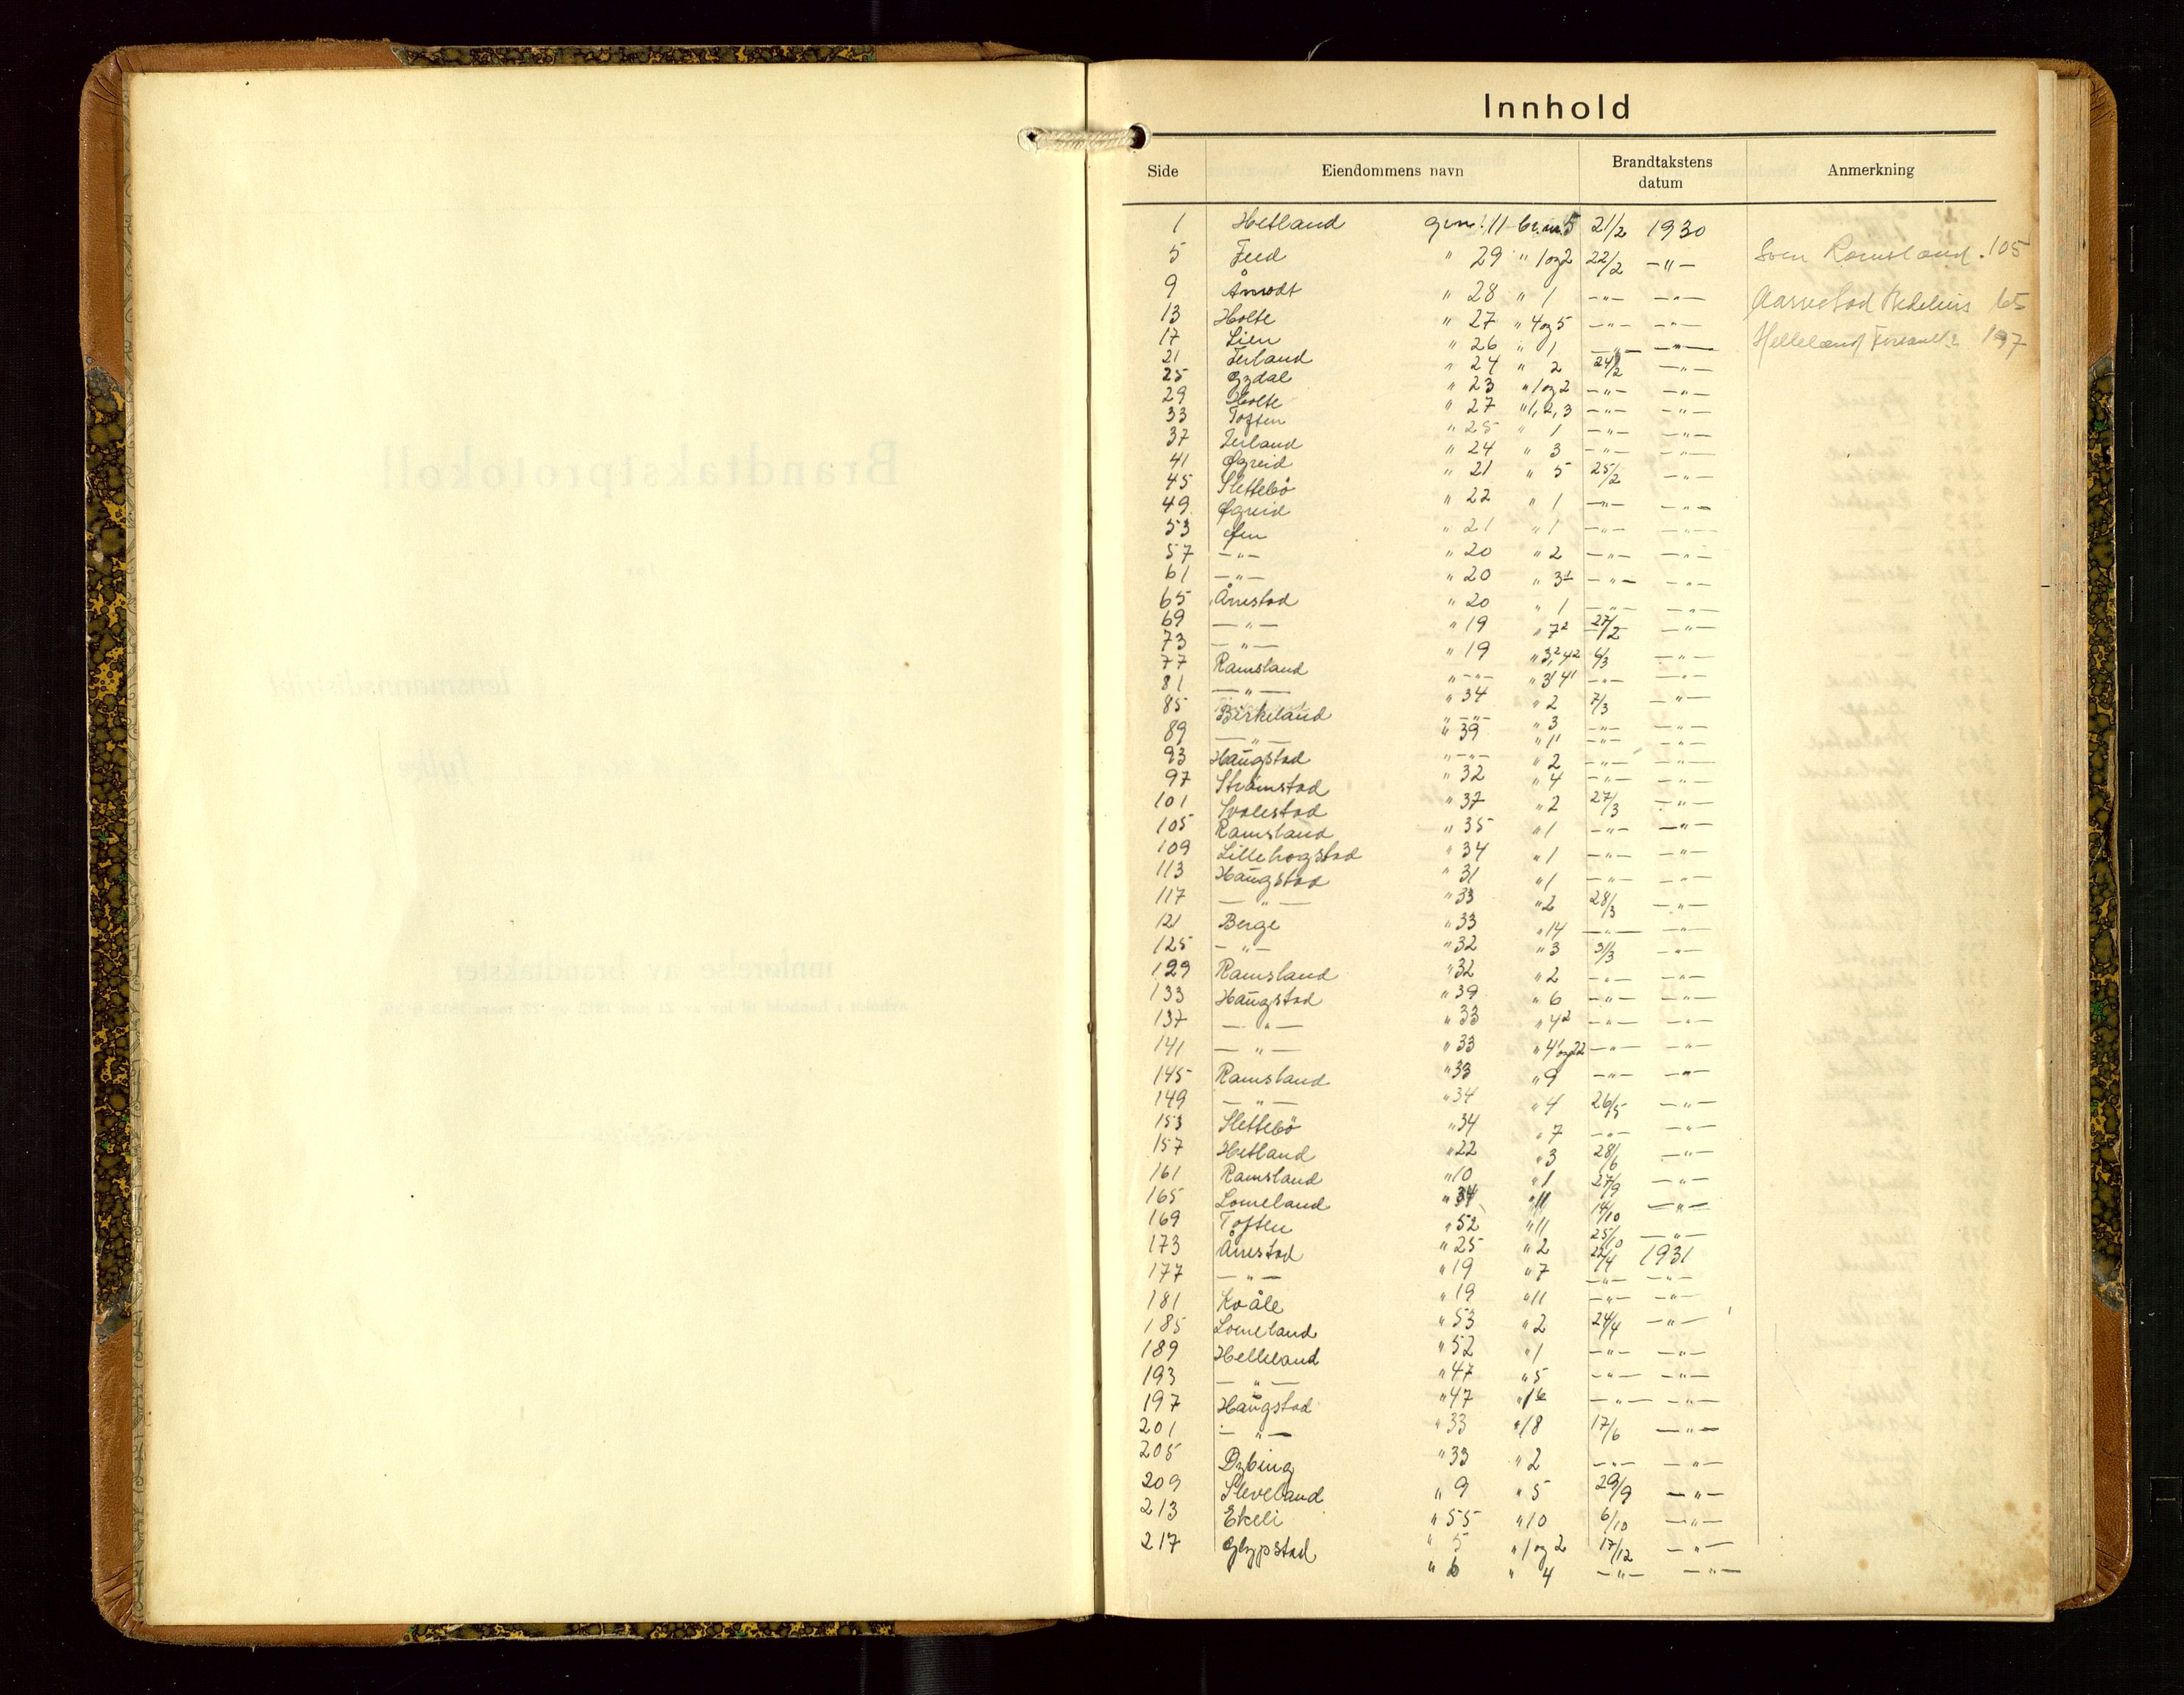 Innhold
Side Eiendommens navn Brandtakstens datum Anmerkning
1 Hetland gnr. 11 br.nr. 5 21/2 1930
5 Feed " 29 " 1 og 2 22/2 —"— Sven Ramsland. 105
9 Årrodt " 28 " 1 —"— —"— Aarrestad Bedehus 65
13 Holte " 27 " 4 og 5 —"— —"—
17 Lien " 26 " 1 —"— —"— Helleland 197
21 Terland " 24 " 2 24/2 —"—
25 Gydal " 23 " 1 og 2 —"— —"—
29 Holte " 27 " 1, 2, 3 —"— —"—
33 Toften " 25 " 1 —"— —"—
37 Terland " 24 " 3 —"— —"—
41 Øgreid " 21 " 5 25/2 —"—
45 Slettebö " 22 " 1 —"— —"—
49 Øgreid " 21 " 1 —"— —"—
53 Øen " 20 " 2 —"— —"—
57 —"— " 20 " 3 —"— —"—
61 —"— " 20 " 1 —"— —"—
65 Årrestad " 19 " 7² 27/2 —"—
69 —"— " 19 " 3,² 4² 6/3 —"—
73 —"— "—"— " 3¹ 4¹ —"—
77 Ramsland " 34 " 2 7/3 —"—
81 —"— "—"— " 3 —"— —"—
85 Birkeland " 39 " 11 —"— —"—
89 —"— "—"— " 2 —"— —"—
93 Haugstad " 32 " 4 —"— —"—
97 Strömstad " 37 " 2 27/3 —"—
101 Svalestad " 35 " 1 —"— —"—
105 Ramsland " 34 " 1 —"— —"—
109 Lillehogstad " 31 " 1 —"— —"—
113 Haugstad " 33 " 2 28/3 —"—
117 —"— " 33 " 14 —"— —"—
121 Berge " 32 " 3 31/3 —"—
125 —"— " 32 " 2 —"— —"—
129 Ramsland " 39 " 6 —"— —"—
133 Haugstad " 33 " 4² —"— —"—
137 —"— " 33 " 4¹ og 22 —"— —"—
141 —"— " 33 " 9 —"— —"—
145 Ramsland " 34 " 4 26/5 —"—
149 —"— " 34 " 7 —"— —"—
153 Slettebö " 22 " 3 28/6 —"—
157 Hetland " 10 " 1 27/9 —"—
161 Ramsland " 34 " 11 14/10 —"—
165 Lomeland " 52 " 11 25/10 —"—
169 Toften " 25 " 2 22/4 1931
173 Årrestad " 19 " 7 —"— —"—
177 —"— " 19 " 11 —"— —"—
181 Kvåle " 53 " 2 24/4 —"—
185 Lomeland " 52 " 1 —"— —"—
189 Helleland " 47 " 5 —"— —"—
193 —"— " 47 " 16 —"— —"—
197 Haugstad " 33 " 18 17/6 —"—
201 —"— " 33 " 2 —"— —"—
205 Dybing " 9 " 5 29/9 —"—
209 Sleveland " 55 " 10 6/10 —"—
213 Ekeli " 5 " 1 og 2 17/12 —"—
217 Glypstad " 6 " 4 —"— —"—